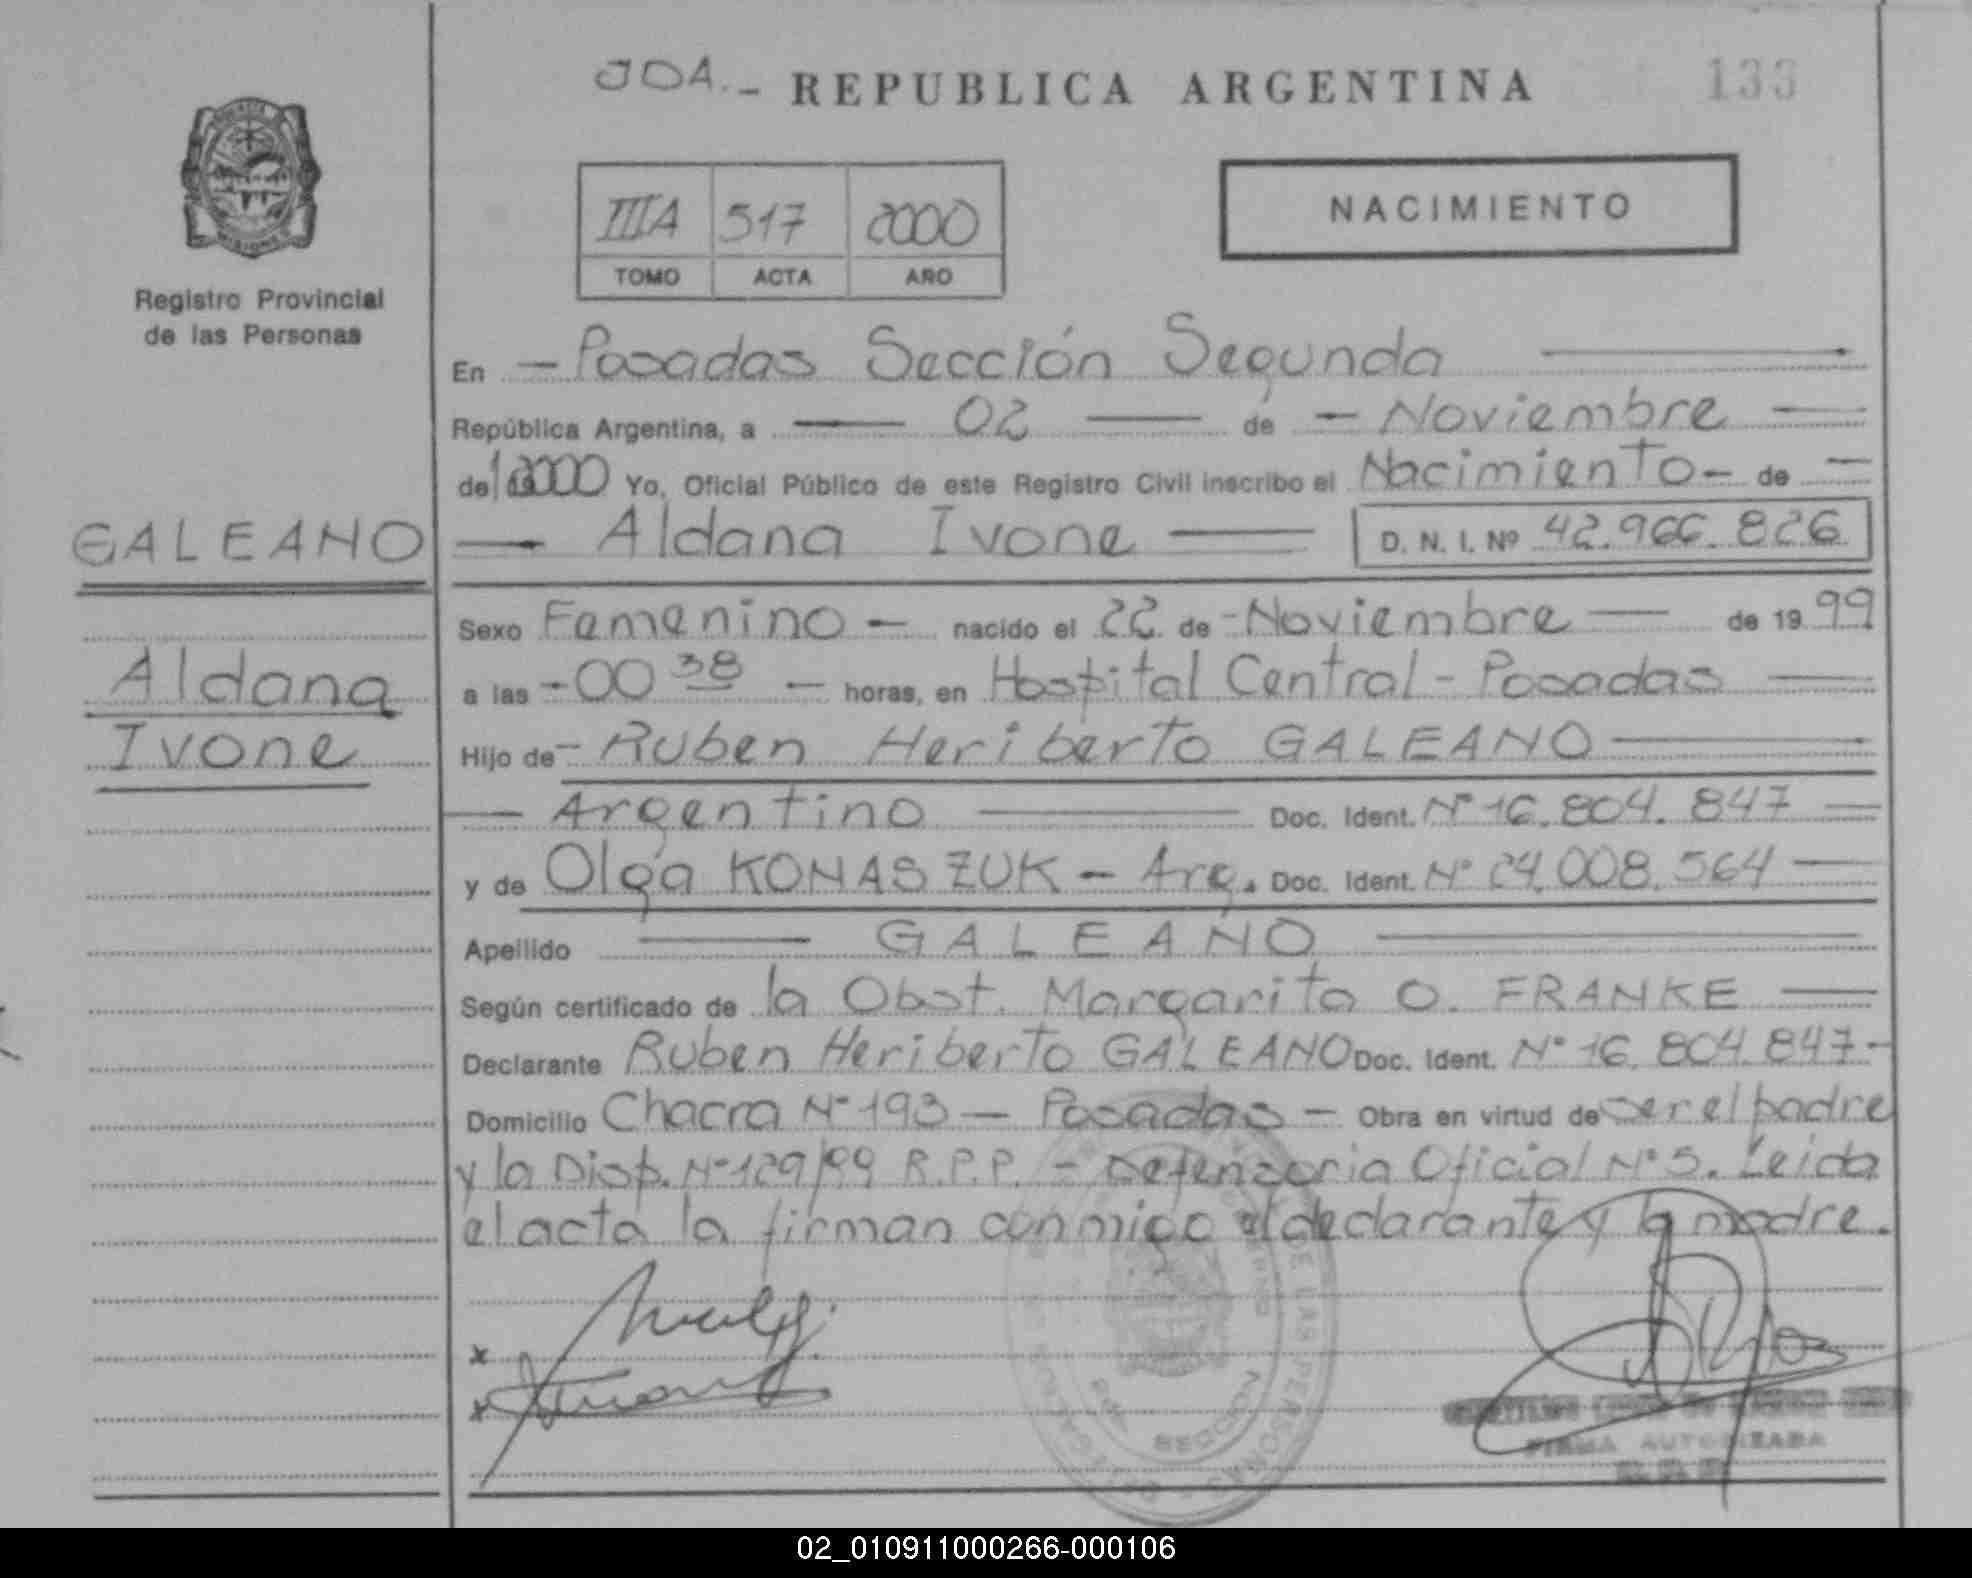 JDA.- REPUBLICA ARGENTINA 133
MISIONES
Registro Provincial
de las Personas
IIIA 517 2000
TOMO ACTA AÑO
NACIMIENTO
En - Posadas Sección Segunda
República Argentina, a 02 de - Noviembre
de 2000 Yo, Oficial Público de este Registro Civil inscribo el Nacimiento - de
GALEANO
Aldana Ivone D. N. I. Nº 42.966.826
Sexo Femenino - nacido el 22 de - Noviembre de 1999
Aldana
a las - 00 38 - horas, en Hospital Central - Posadas
Ivone
Hijo de - Ruben Heriberto GALEANO
Argentino Doc. Ident. Nº 16.804.847
y de Olga KONASZUK - Arg. Doc. Ident. Nº 24.008.564
Apellido GALEANO
Según certificado de la Obst. Margarita O. FRANKE
Declarante Ruben Heriberto GALEANO Doc. Ident. Nº 16.804.847-
Domicilio Chacra Nº 193 - Posadas - Obra en virtud de ser el padre
y la Disp. Nº 129/99 R.P.P. - Defensoria Oficial Nº 5. Leida
el acta la firman conmigo el declarante y la madre.
x
x
DE LAS PERSONAS
FIRMA AUTORIZADA
02_010911000266-000106